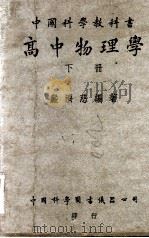 中國科學教科書
高中物理學
下冊
嚴濟慈編著
中國科學圖書儀器公司
發行